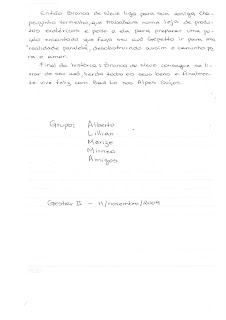 Então Branca de Neve liga para sua amiga Cha-
peuzinho Vermelho, que trabalhava numa loja de produ-
tos esotéricos e pede a ela para preparar uma po-
ção encantada que faça seu avô Gepetto ir para ma
realidade paralela, desobstruindo assim o caminho pa-
ra o amor.
Final da história: Branca de Neve consegue se li-
vrar de seu avô, herda todos os seus bens e finalmen-
te vive feliz com Bad Lo nos Alpes Suíços.
Grupo: Alberto
Lillian
Marize
Mirnea
Amigos
Gestar II - 11/novembro/2009